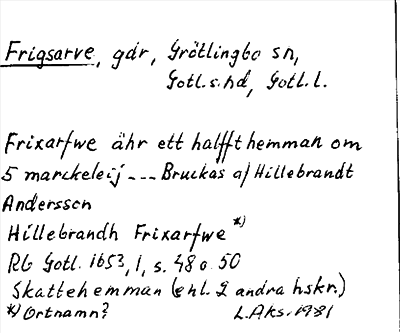 Frigsarve, gdr, Grötlingbo sn,
Gotl. s. hd, Gotl. l.
Frixarfwe ähr ett halfft hemman om
5 marckeleij --- Bruckas af Hillebrandt
Andersson
Hillebrandh Frixarfwe *)
Rb Gotl. 1653, 1, s. 48 o. 50
Skattehemman (enl. 2 andra hskr.)
*) Ortnamn? L. Aks. 1981